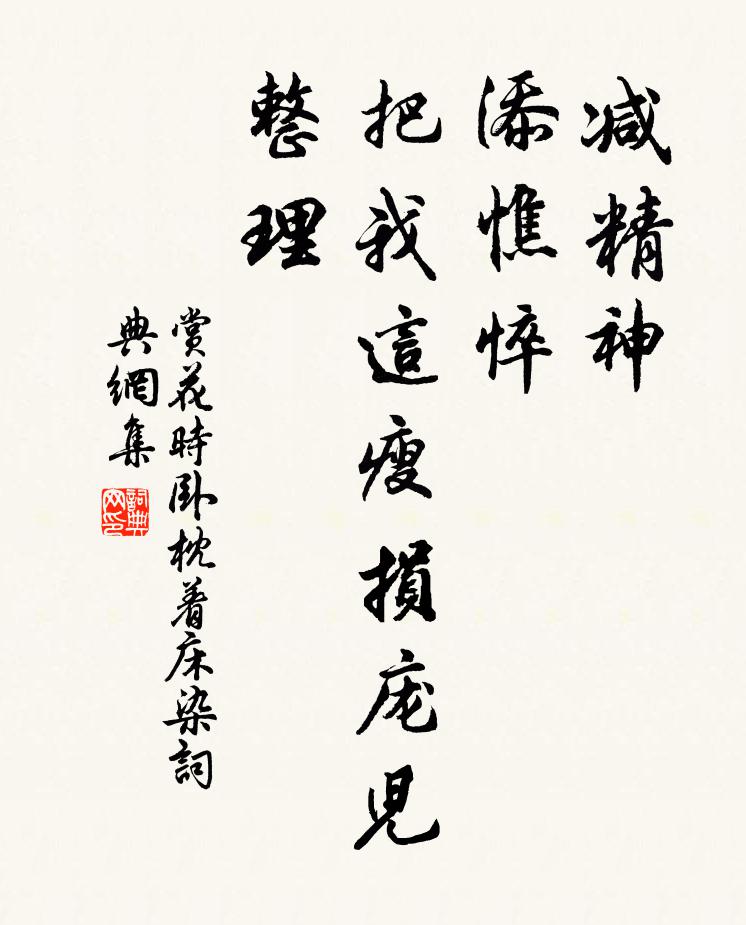 减精神
添憔悴
把我這瘦損庞児
整理
賞花時卧枕着床染詞
典網集
詞典网印